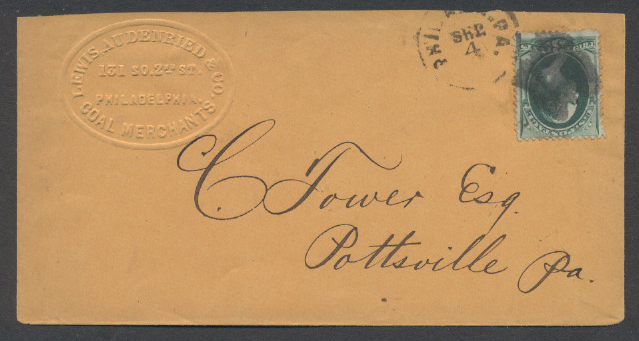 LEWIS AUDENRIED & CO.
131 SO. 2nd ST.
PHILADELPHIA.
COAL MERCHANTS.
PHILADA. PA.
SEP
4
C Tower Esq.
Pottsville Pa.